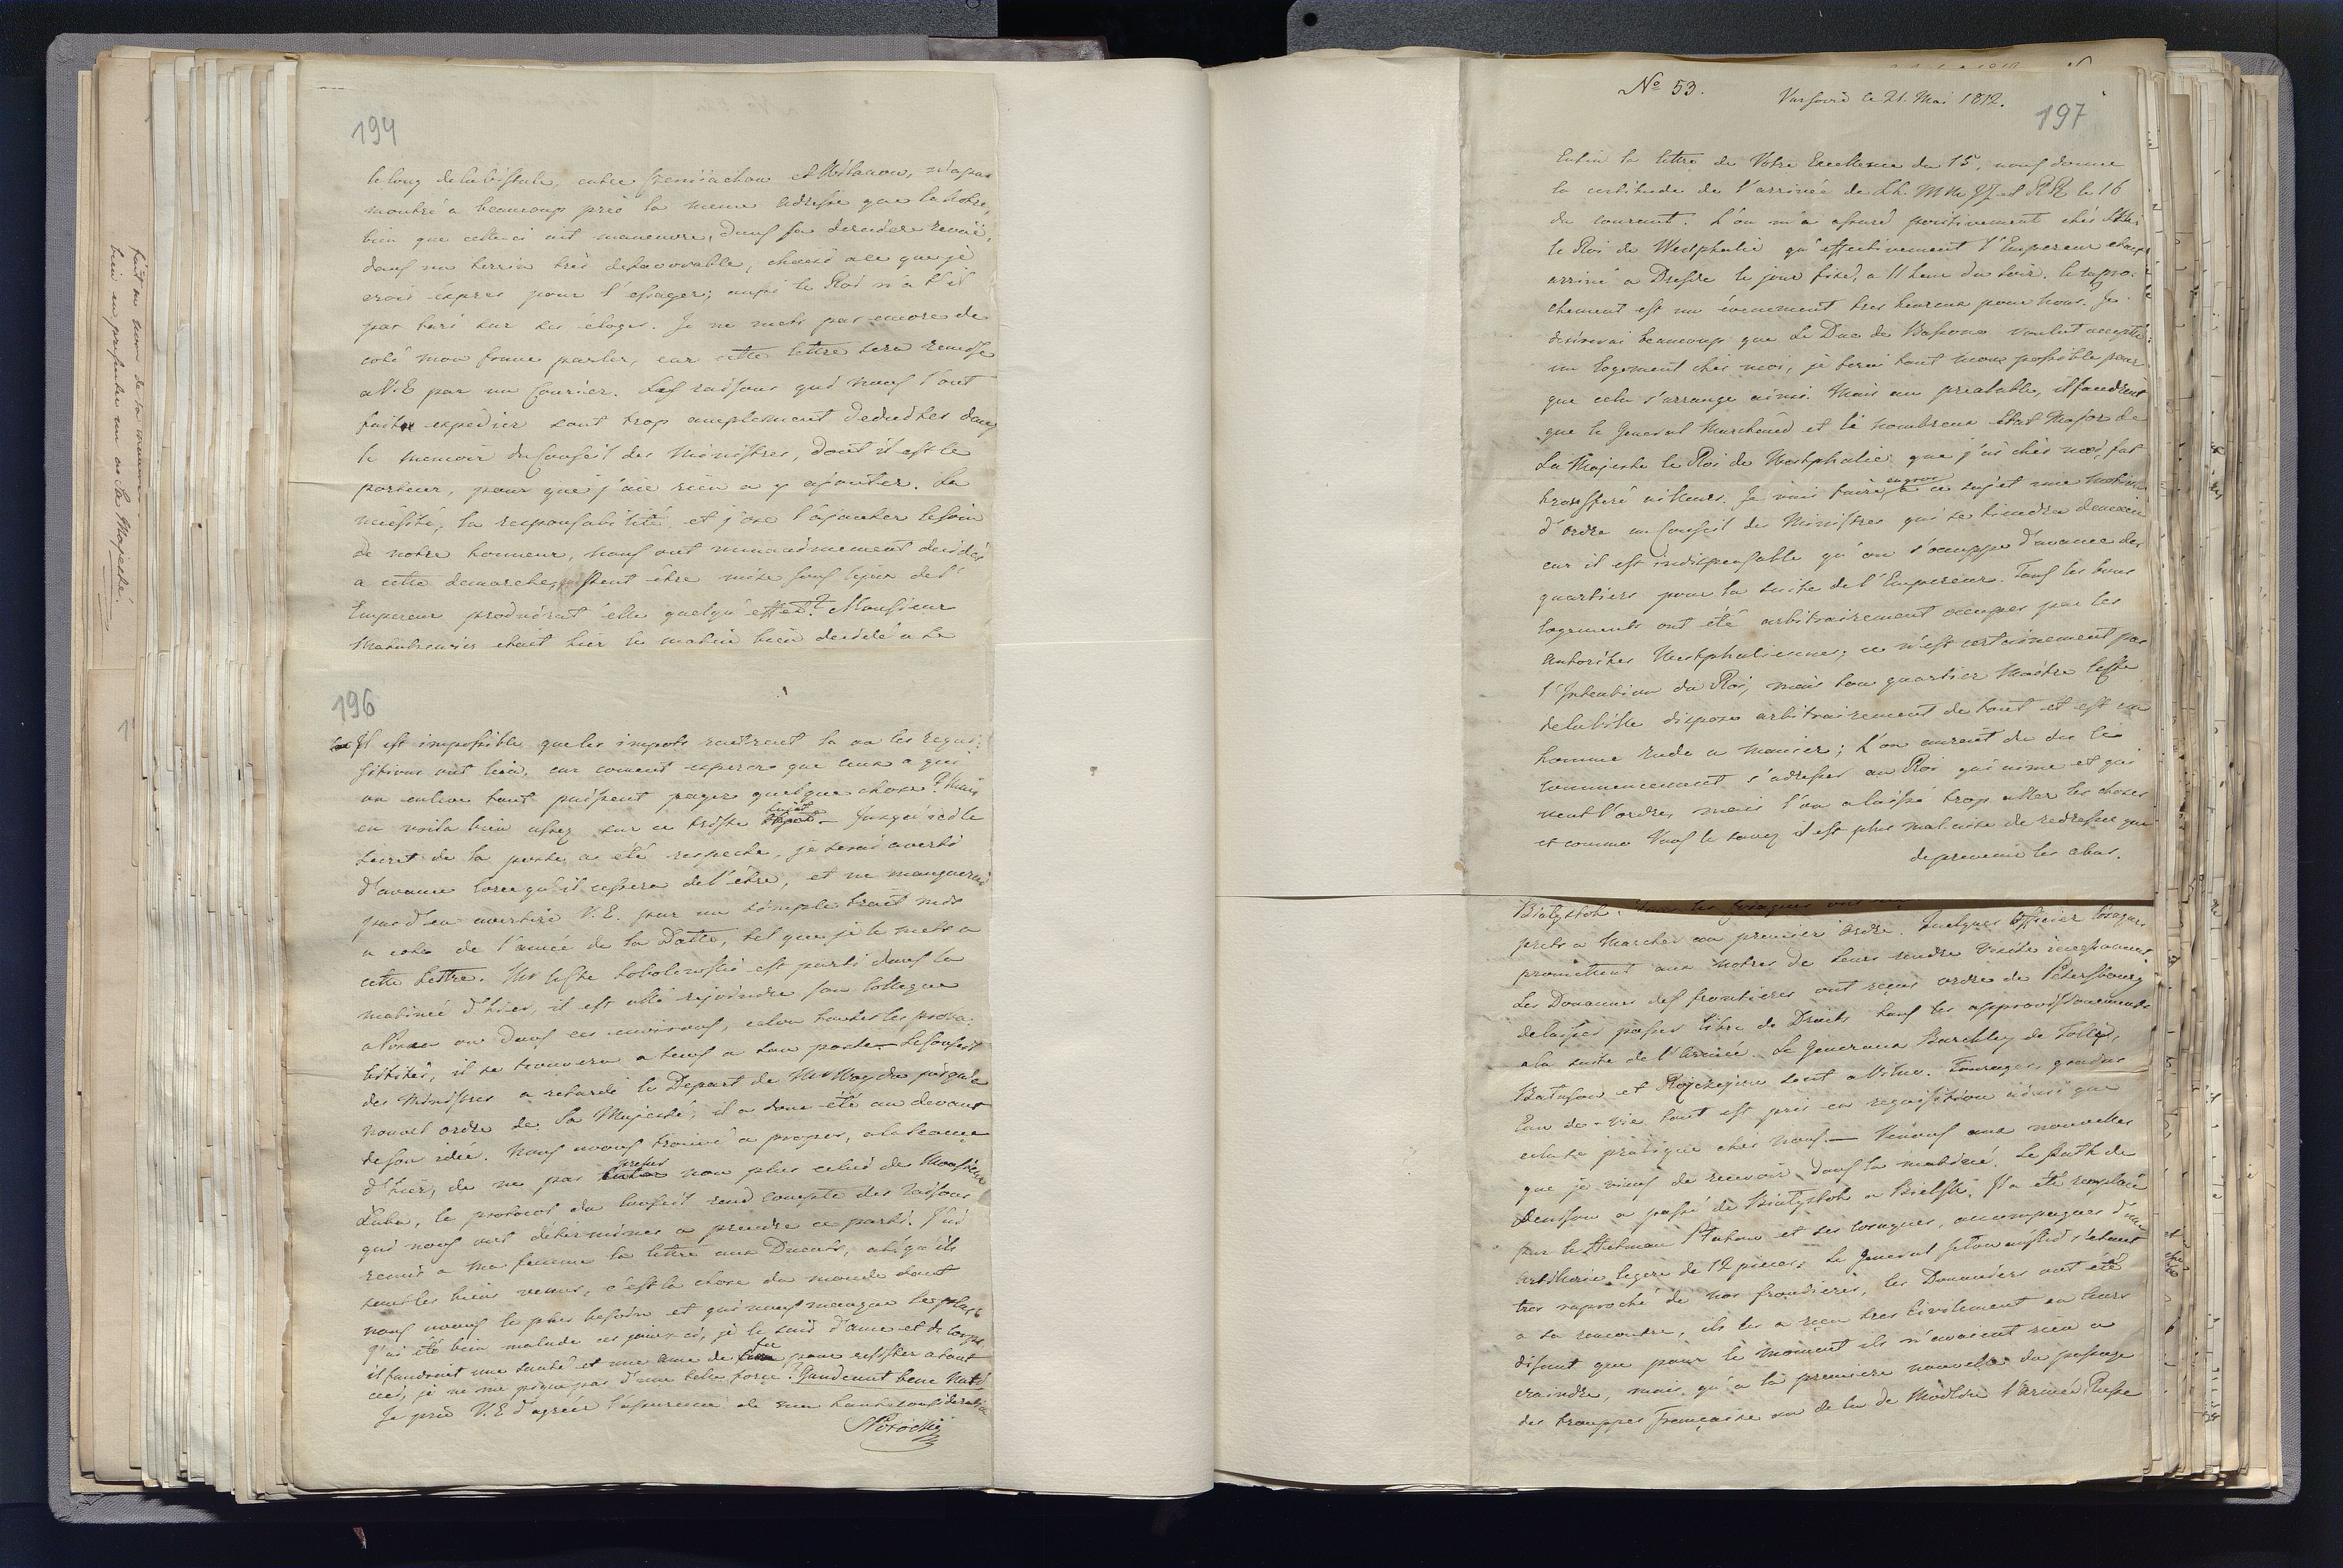 194
le long de la Vistule, entre et Wilanow, n'a pas
montré a beaucoup près la meme adresse que la notre,
bien que celle-ci ait maneuvré, dans sa derniere revue,
dans un terrin très defavorable, choisi a ce que je
crois éxpres pour l'essayer; aussi le Roi n'a t'il
pas tari sur ses éloges. Je ne mets pas encore de
coté mon franc parler, car cette lettre sera remise
a V.E par un Courier. Les raisons qui nous l'ont
fait expedier sont trop amplement deduites dans
le memoire du Conseil des Ministres, dont il est le
porteur, pour que j'aie rien a y ajouter. La
nécésité, la responsabilité, et j'ose l'ajouter le soin
de notre honneur, nous ont unanimement decidés
a cette demarche, peut être mise sous les yeux de l'
Empereur produirat 'elle quelqu' effet? Monsieur
Matuszewicz etait hier le matin bien decidé a se
196
Il est impossible que les impots rentrent la ou les requi:
sitions ont lieu, car coment esperer que ceux a qui
on enleve tout puissent payer quelque chose? Mais
en voila bien assez sur ce triste sujet — Jusqu'ici le
secret de la poste a eté respecté, je serai averti
d'avance lorsqu'il cessera de l'être, et ne manquerai
pas d'en avertir V.E. par un simple trait mis
a coté de l'année de la Datte, tel que je le mets a
cette lettre. Mr le Cte Sobolewski est parti dans la
matinée d'hier, il est allé rejoindre son Collegue
a Posen ou dans ces environs, selon toutes les proba:
bilités, il se trouvera a tems a son poste — Le Conseil
des Ministres a retardé le Depart de Mr Woyda jusqu'a
nouvel ordre de Sa Majesté; il a donc été au devant
de son idée. Nous avons trouvé a propos, a la séance
d'hier, de ne pas presser non plus celui de Monsieur
Luba, le protocol du Conseil rend compte des raisons
qui nous ont déterminés a prendre ce parti. J'ai
remis a Ma femme la lettre aux Ducats,
sont les bien venus, c'est la chose du monde dont
nous avons le plus besoin et qui nous manque le plus.
J'ai été bien malade ces jours-ci, je le suis d'ame et de corps,
il faudroit une santé et une ame de fer pour resister a tout
ceci, je ne me pique pas d'une telle force. Gaudeant bene Nati
Je prie V.E d'agréer l'assurance de ma haute consideration
SPotocki
faut au nom de
bien en presenter un a Sa Majesté.
No 53.
Varsovie le 21. Mai 1812.
197
Enfin la lettre de Votre Excellence du 15, nous donne
la certitude de l'arrivée de LL. MM JJ et RR le 16
du courant. L'on m'a assuré positivement chés
le Roi de Westphalie qu'effectivement l'Empereur etait
arrivé a Dresde le jour fixé, a 11 heure du soir. Ce rapro:
chement est un évenement tres heureux pour nous. Je
desirerai beaucoup que Le Duc de Bassano voulut accepter
un logement chés moi, je ferai tout mon possible pour
que cela s'arrange ainsi. Mais au prealable, il faudroit
que le General Marchand et le nombreux Etat Major de
Sa Majesté le Roi de Westphalie que j'ai chés moi, fut
transferé ailleurs. Je vais faire encore a ce sujet une motion
d'ordre au Conseil des Ministres qui se tiendra demain
car il est indispensable qu'on s'occuppe d'avance des
quartiers pour la suite de l'Empereur. Tous les bons
logements ont été arbitrairement occupés par les
Autorités Westphaliennes; ce n'est certainement pas
l'Intention du Roi, mais son quartier Maitre
de la Ville dispose arbitrairement de tout et est un
homme rude a manier; L'on auroit du des le
commencement s'adresser au Roi qui aime et qui
veut l'ordre, mais l'on a laissé trop aller les choses
et comme Vous le savez il est plus mal aisé de redresser que
de prevenir les abus.
Bialystok.
prets a Marcher au premier Ordre. Quelques Officier Cosaques
promettent aux notres de leurs rendre visite incessament.
Les Douannes des frontieres ont reçus ordre de Petersbourg
de laisser passer libre de Droits tous les approvisionements
a la suite de l'Armée. Le Generaux Barkley de Tolly,
et sont a Vilna. Fourages, grains
Eau-de-vie tout est pris en requisition ainsi que
cela se pratique chés Nous. — Venons aux nouvelles
que je viens de recevoir dans la matinée. Le
a passé de Bialystok a Bielsk. Il a été remplacé
par le Hetman Platow et ses Cosaques, accompagnés d'une
Artillerie legere de 12 pieces. Le General s'etant
tres raproché de nos frontieres, les Douaniers ont été
a sa rencontre, ils les a reçu tres civilement en leurs
disant que pour le moment ils n'avaient rien a
craindre, mais qu'a la premiere nouvelle du passage
des trouppes Française au dela de Modlin l'armée Russe